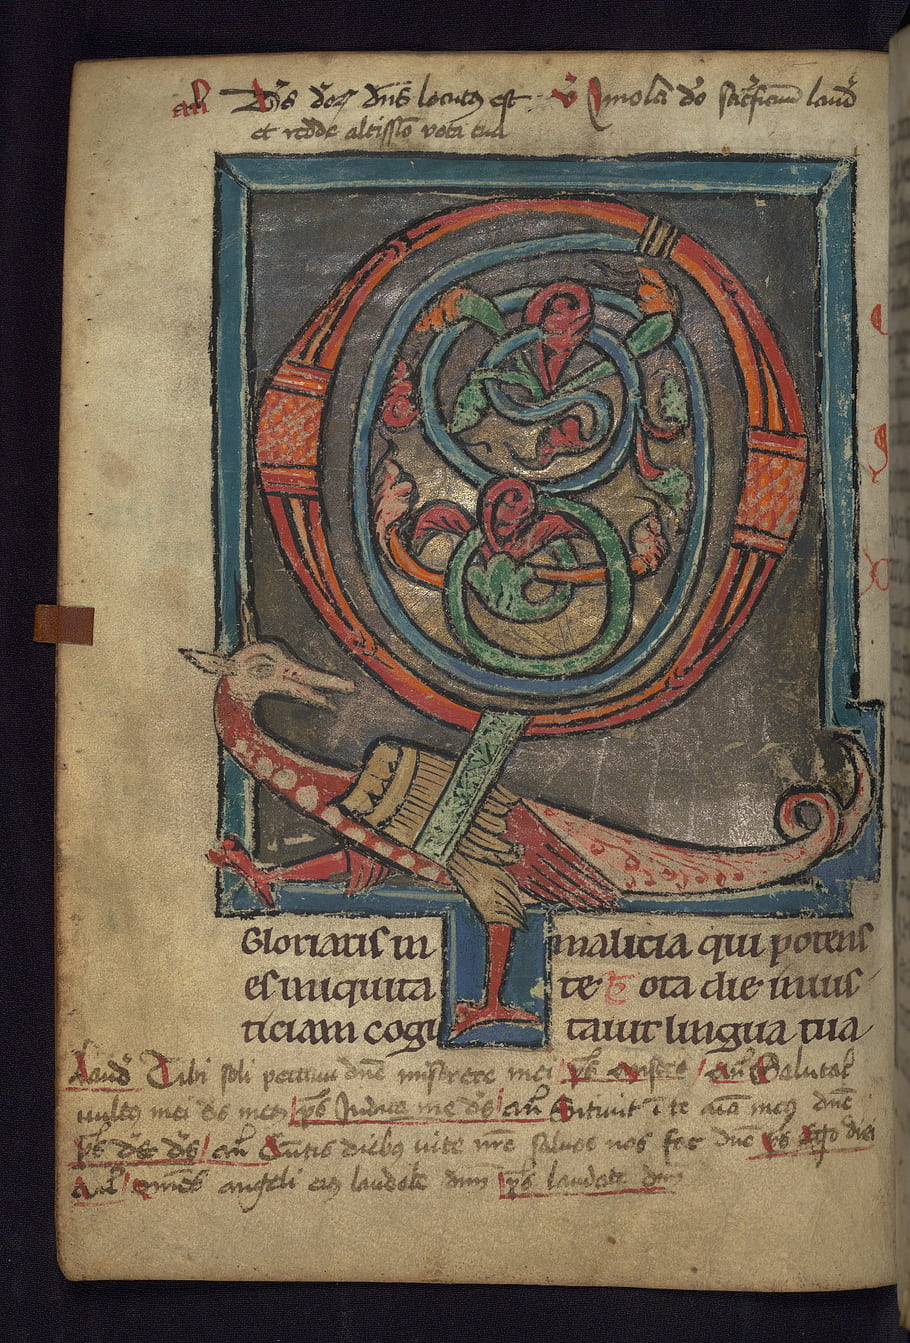 an̄ Ds deorꝝ dns̄ locutꝰ est v̄ Imola do sacficium laud
et redde altissīo vota tua
Q
Gloriaris in malicia qui potens
es iniquita te Tota die inius
ticiam cogi tauit lingua tua
laud Tibi soli peccaui dnē miserere mei ps an̄ Salutaē
uultꝰ mei ds meꝰ ps Judica me ds an̄ Sitiuit ī te aīa meꝰ dnē
ps ds ds an̄ Cūctis diebꝰ uite nrē saluos nos fac dnē ps Ego dixi
an̄ omēs angeli eiꝰ laudate dnm ps laudate dnm